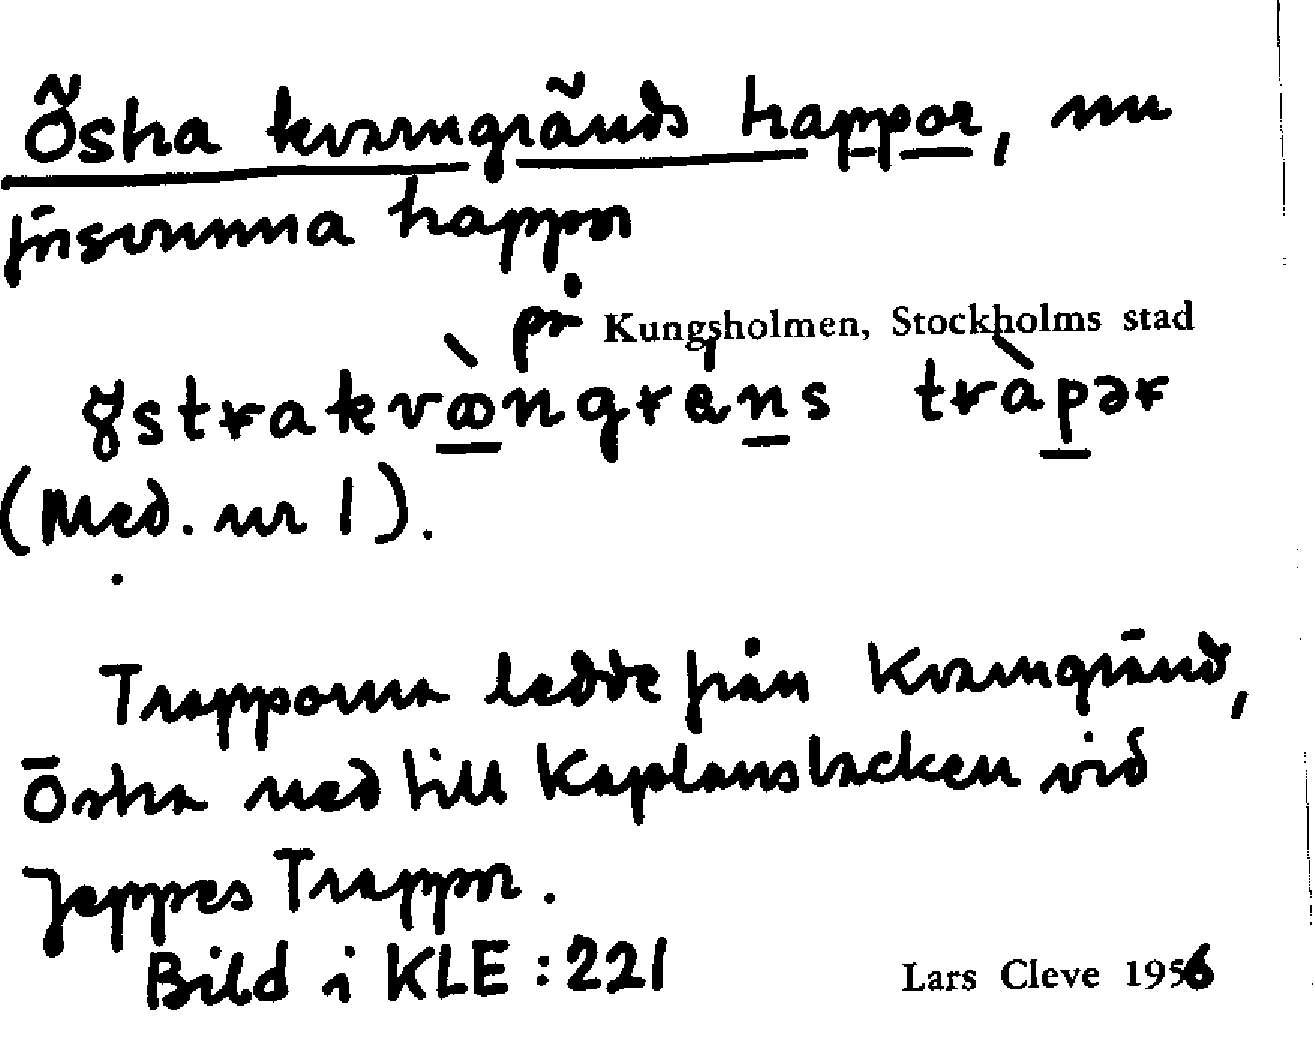 Östra kvarngränds trappor, nu
försvunna trappor
på Kungsholmen, Stockholms stad
(Med. nr 1).
Trapporna ledde från Kvarngränd,
Östra ned till Kaplansbacken vid
Jeppes Trappor.
Bild i KLE : 221
Lars Cleve 1956